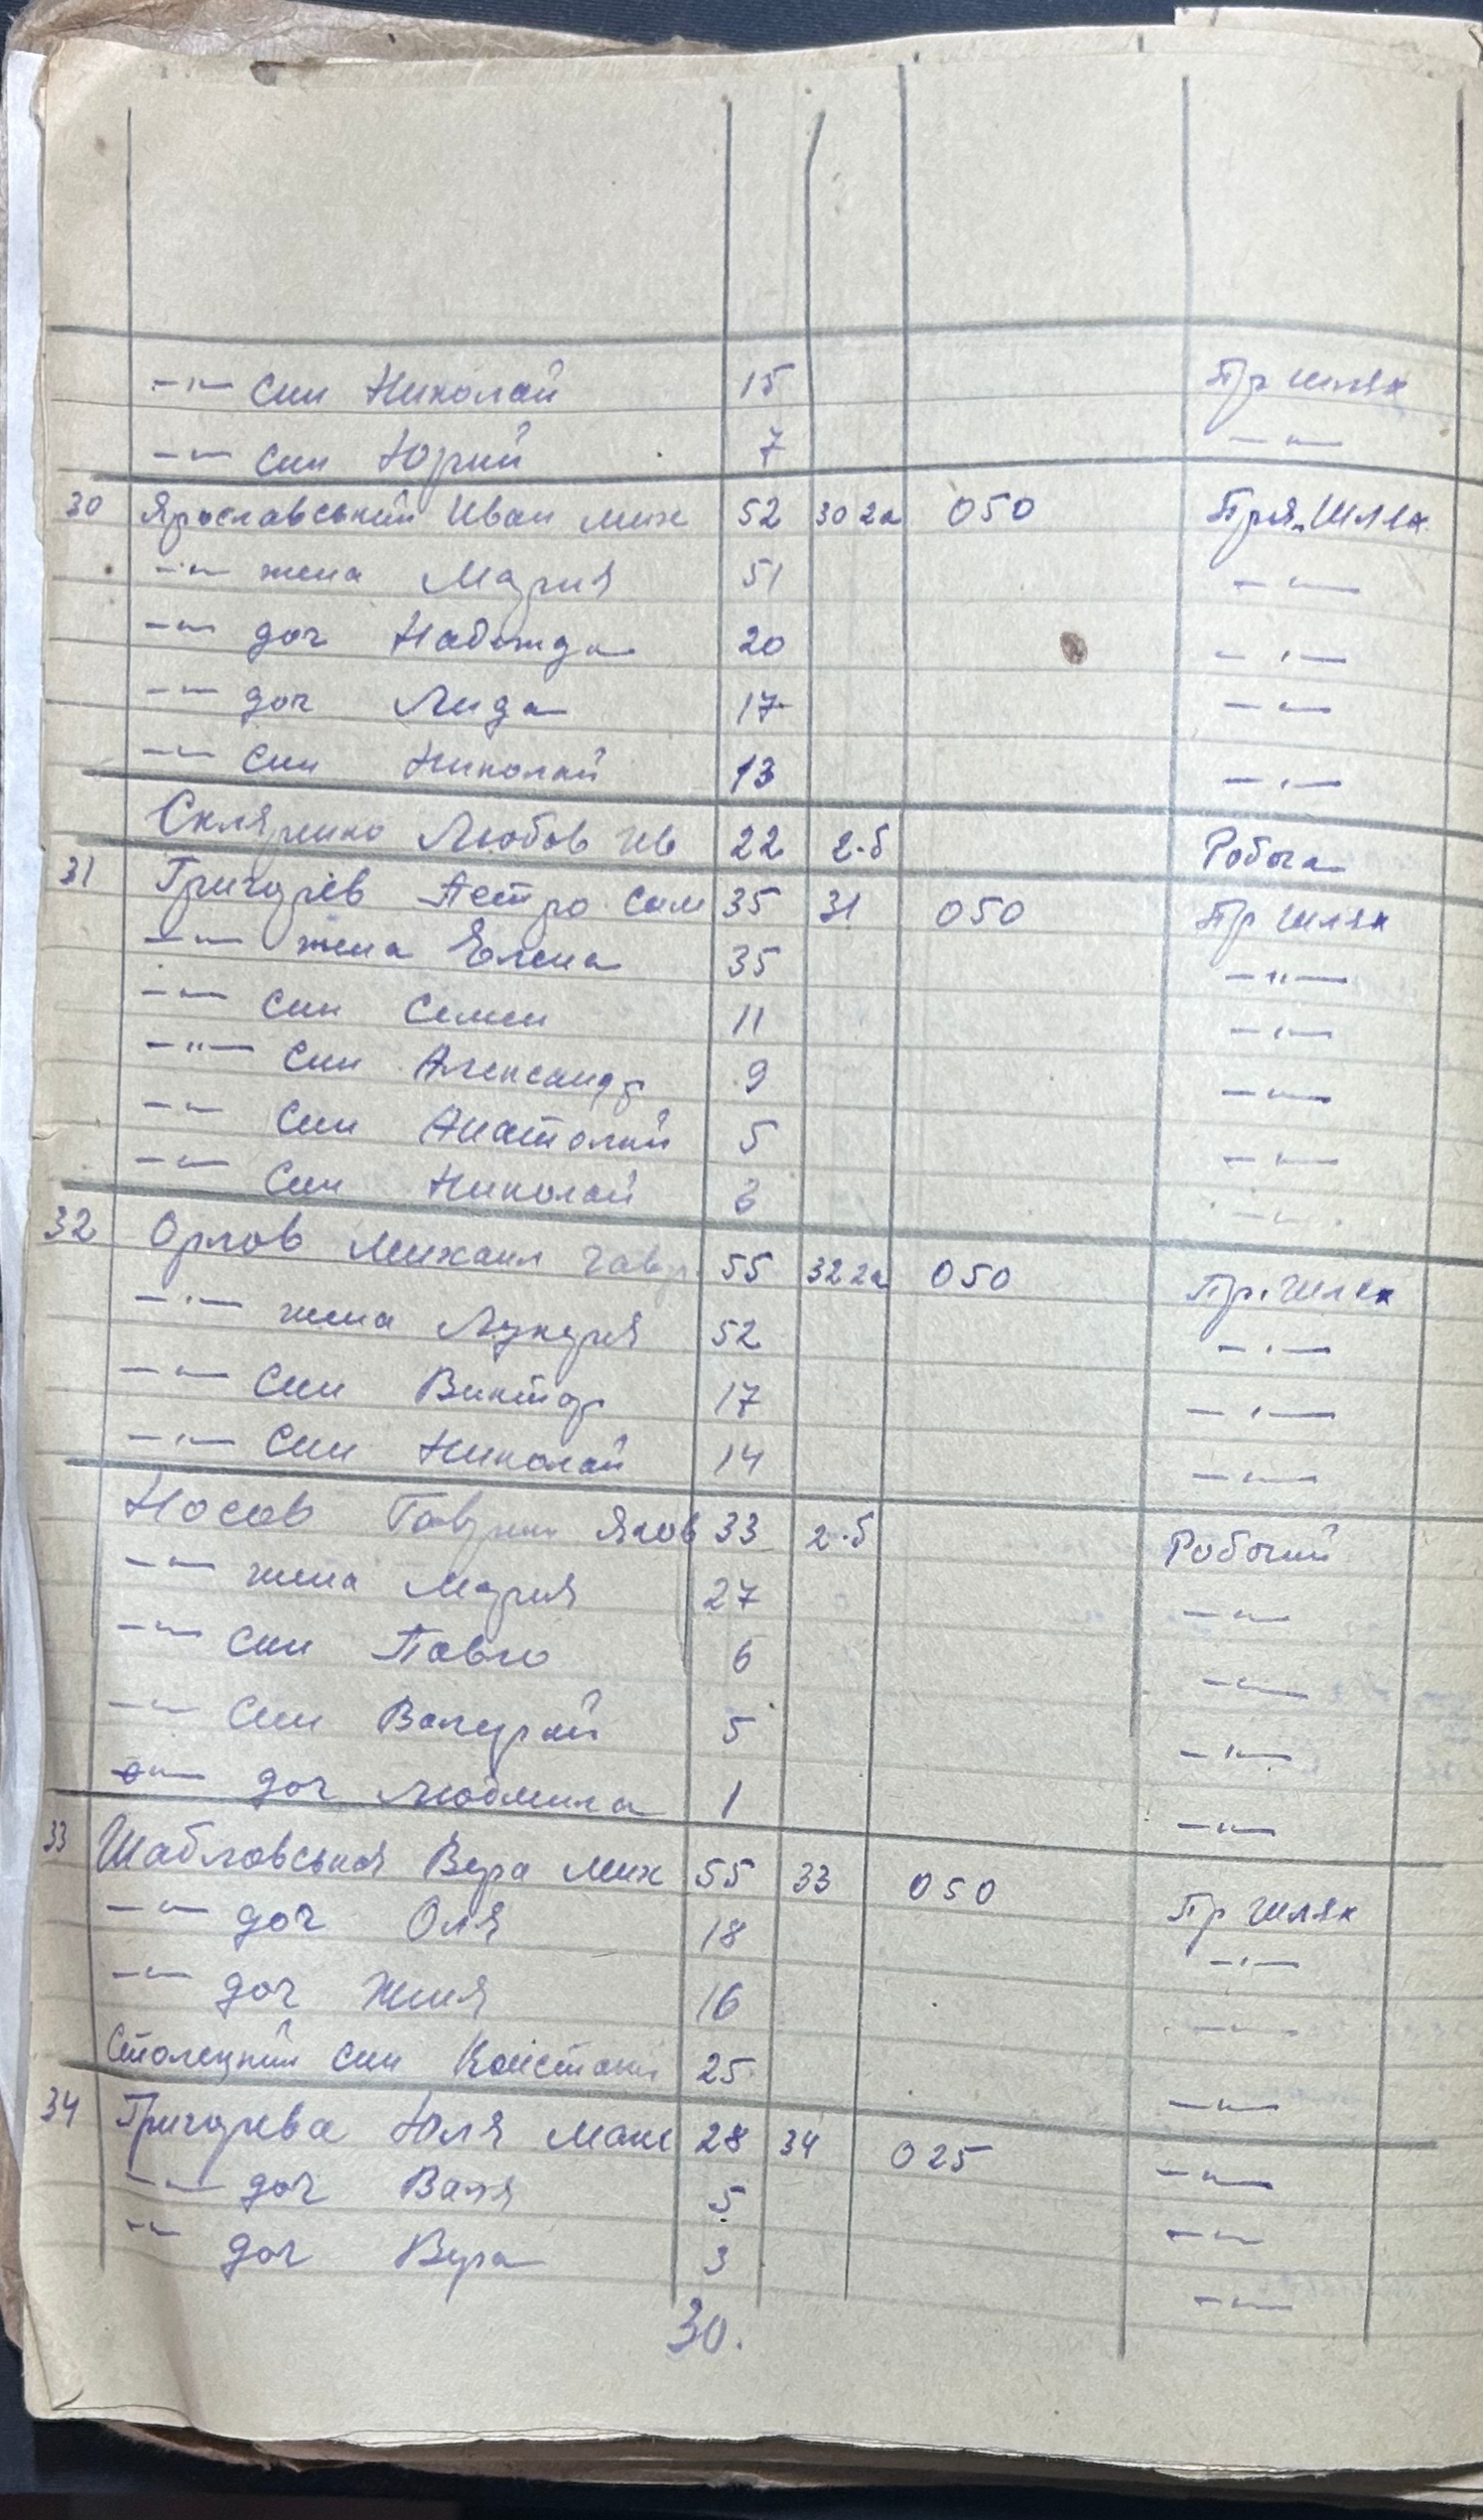 -"- син Николай 15 Пр шлях
-"- син Юрий 7 -"-
30 Ярославський Иван Мих 52 30 2а 050 Пря. Шлях
-"- жена Мария 51 -"-
-"- доч Надежда 20 -"-
-"- доч Лида 17 -"-
-"- син Николай 13 -"-
Скляренко Любов Ив 22 2.б Робоча
31 Григорев Петро Сем 35 31 050 Пр шлях
-"- жена Елена 35 -"-
-"- син Семен 11 -"-
-"- син Александр 9 -"-
-"- син Анатолий 5 -"-
-"- син Николай 3 -"-
32 Орлов Михаил Гавр. 55 32 2а 050 Пр. Шлях
-"- жена Лукеря 52 -"-
-"- син Виктор 17 -"-
-"- син Николай 14 -"-
Носов Гаврил Яков 33 2.б Робочий
-"- жена Мария 27 -"-
-"- син Павло 6 -"-
-"- син Валерий 5 -"-
-"- доч Людмила 1 -"-
33 Шабловськая Вера Мих 55 33 050 Пр шлях
-"- доч Оля 18 -"-
-"- доч Женя 16 -"-
син Констант 25 -"-
34 Григорева Юля Мак 28 34 025 -"-
-"- доч Валя 5 -"-
-"- доч Вера 3 -"-
30.